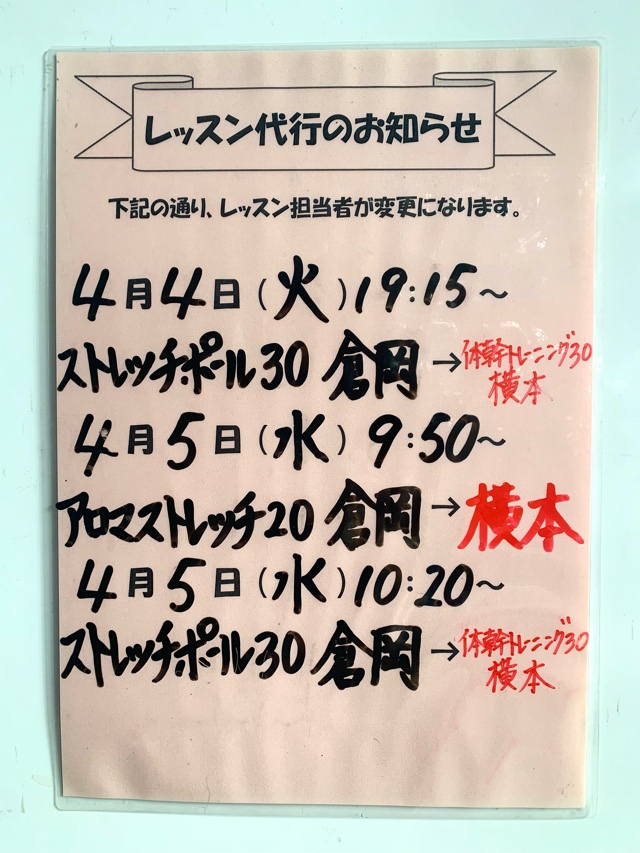 レッスン代行のお知らせ
下記の通り、レッスン担当者が変更になります。
4月4日(火)19:15~
ストレッチポール30 倉岡→体幹トレーニング30
横本
4月5日(水)9:50~
アロマストレッチ20 倉岡→横本
4月5日(水)10:20~
ストレッチポール30 倉岡→体幹トレーニング30
横本